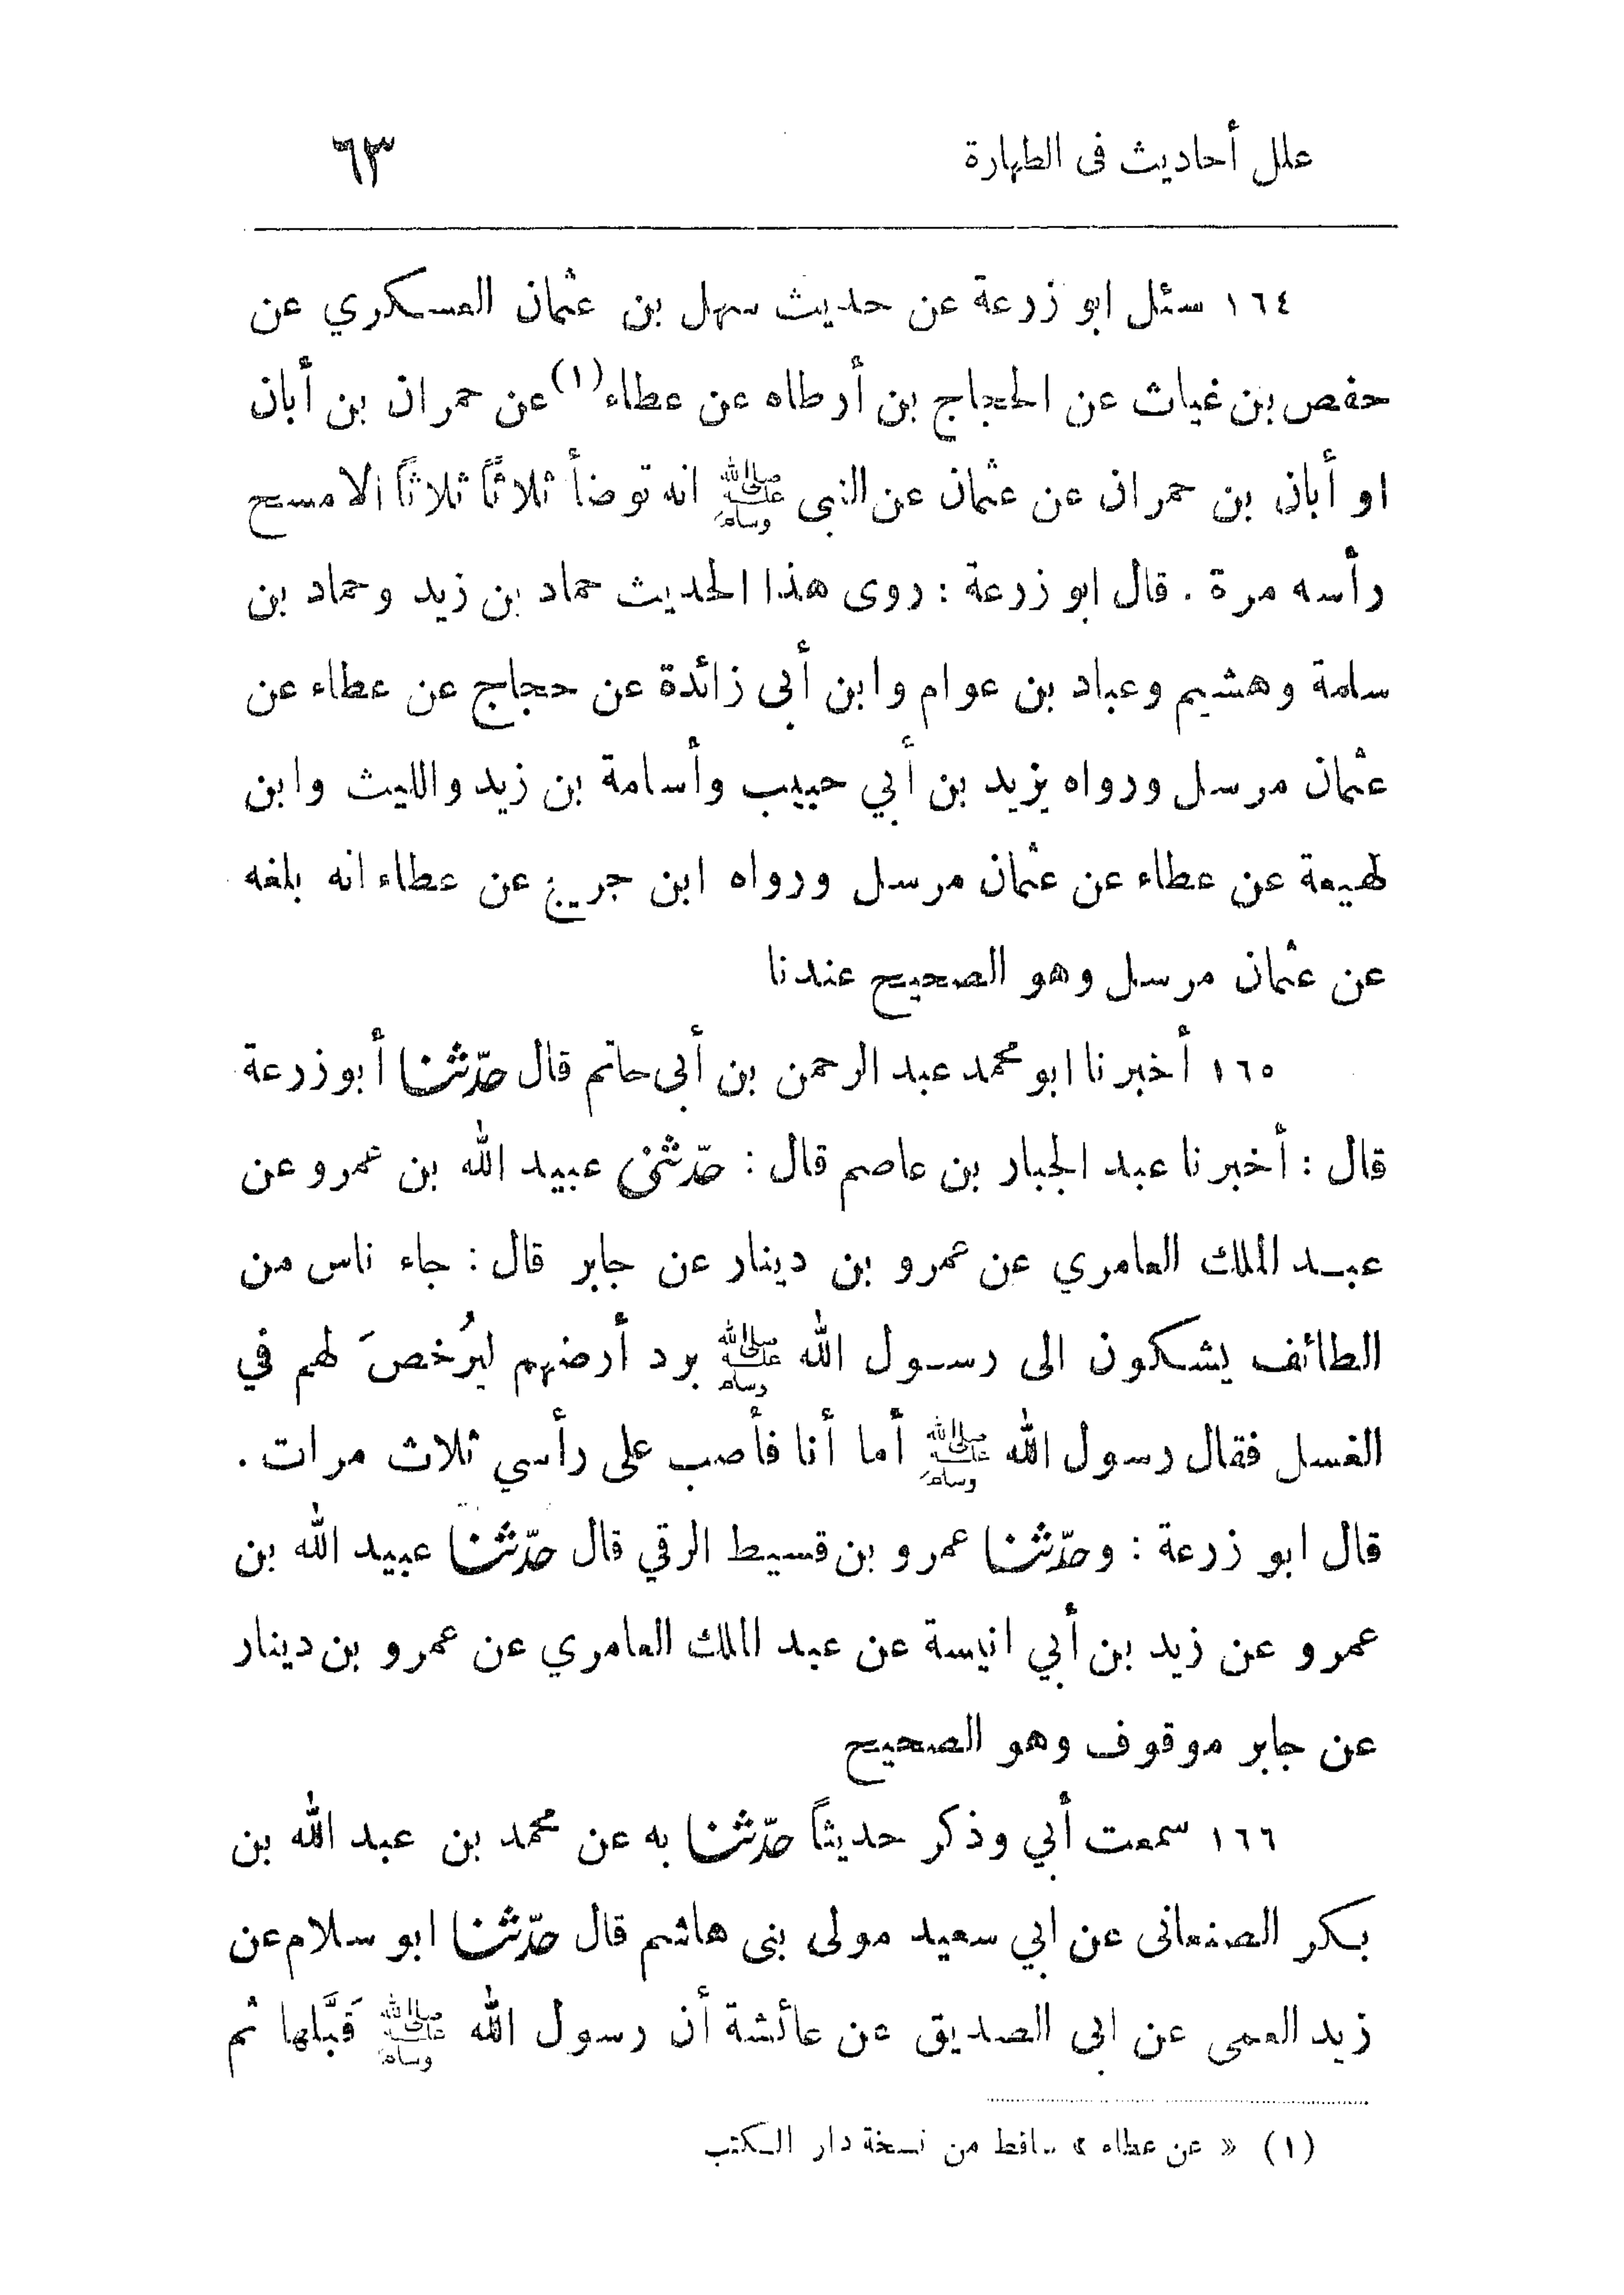 علل أحاديث فى الطهارة ٦٣
١٦٤ سئل ابو زرعة عن حديث سهل بن عثمان العسكري عن
حفص بن غياث عن الحجاج بن أرطاه عن عطاء (١) عن حمران بن أبان
او أبان بن حمران عن عثمان عن النبى ﷺ انه توضأ ثلاثاً ثلاثاً الا مسح
رأسه مرة . قال ابو زرعة : روى هذا الحديث حماد بن زيد وحماد بن
سلمة وهشيم وعباد بن عوام وابن أبى زائدة عن حجاج عن عطاء عن
عثمان مرسل ورواه يزيد بن أبي حبيب وأسامة بن زيد والليث وابن
لهيعة عن عطاء عن عثمان مرسل ورواه ابن جريج عن عطاء انه بلغه
عن عثمان مرسل وهو الصحيح عندنا
١٦٥ أخبرنا ابو محمد عبد الرحمن بن أبى حاتم قال حدّثنا أبو زرعة
قال : أخبرنا عبد الجبار بن عاصم قال : حدّثنى عبيد الله بن عمرو عن
عبد الملك العامري عن عمرو بن دينار عن جابر قال : جاء ناس من
الطائف يشكون الى رسول الله ﷺ برد أرضهم ليُرخصَ لهم في
الغسل فقال رسول الله ﷺ أما أنا فأصب على رأسي ثلاث مرات .
قال ابو زرعة : وحدّثنا عمرو بن قسيط الرقي قال حدّثنا عبيد الله بن
عمرو عن زيد بن أبي انيسة عن عبد الملك العامري عن عمرو بن دينار
عن جابر موقوف وهو الصحيح
١٦٦ سمعت أبي وذكر حديثاً حدّثنا به عن محمد بن عبد الله بن
بكر الصنعانى عن ابي سعيد مولى بنى هاشم قال حدّثنا ابو سلام عن
زيد العمى عن ابى الصديق عن عائشة أن رسول الله ﷺ قَبَّلها ثم
(١) « عن عطاء » ساقط من نسخة دار الكتب